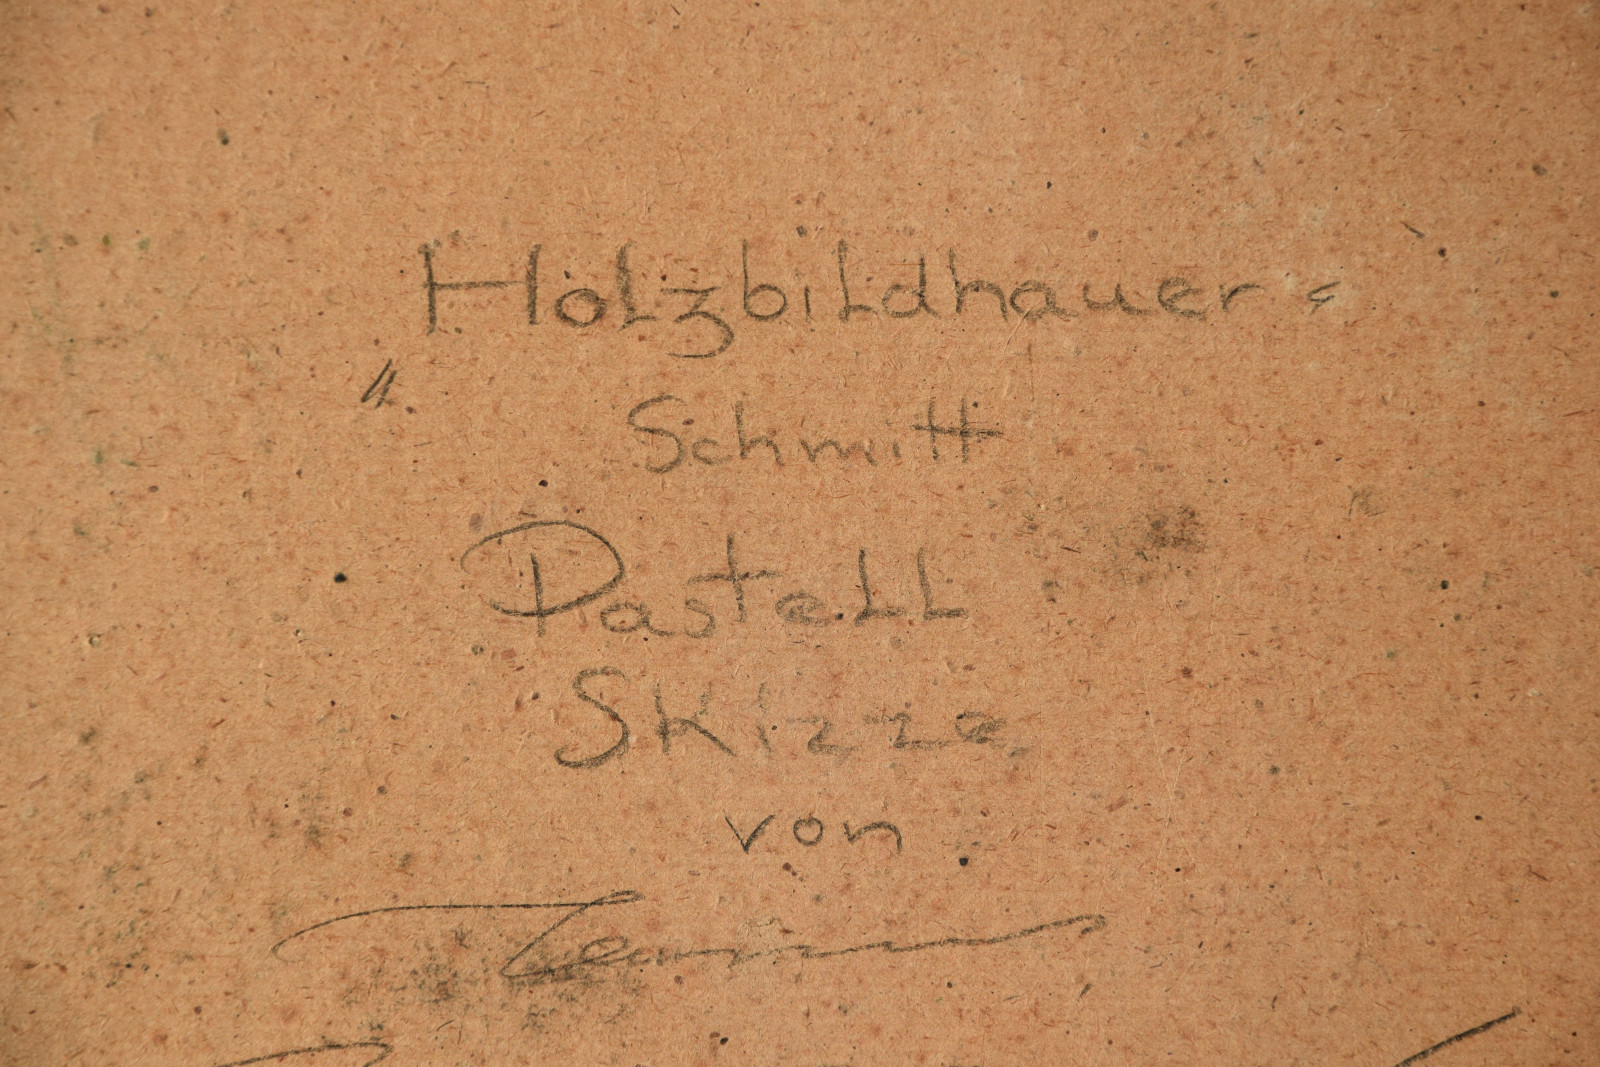 Holzbildhauer =
"
Schmitt
Pastell
Skizze
von